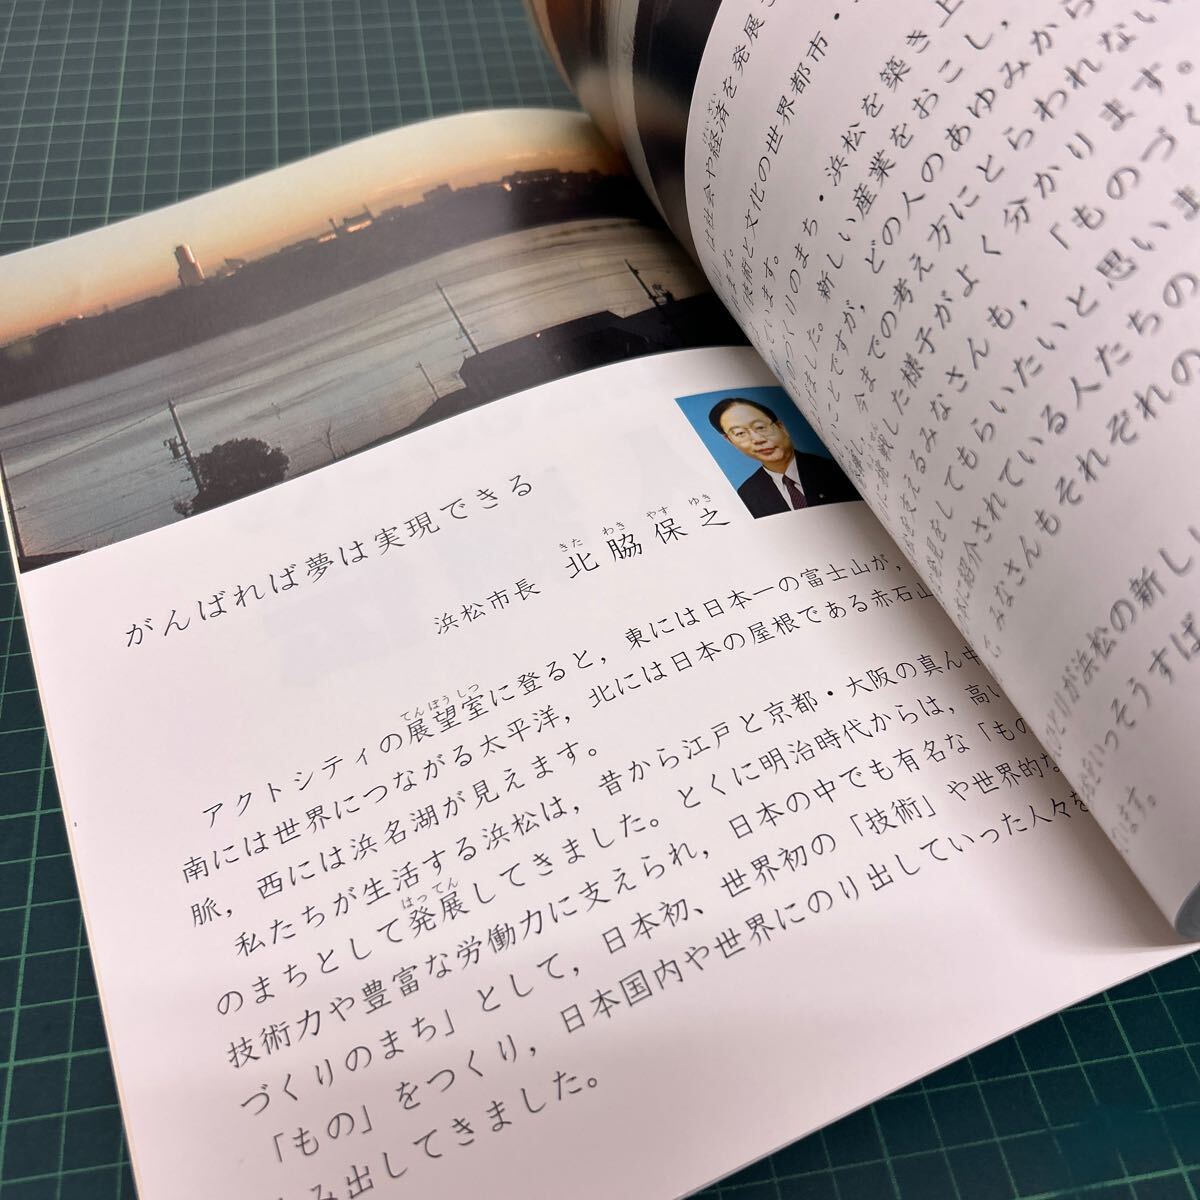 がんばれば夢は実現できる
浜松市長 北脇保之
きた わき やす ゆき
アクトシティの展望室に登ると，東には日本一の富士山が，
てんぼうしつ
南には世界につながる太平洋，北には日本の屋根である赤石山
脈，西には浜名湖が見えます。
私たちが生活する浜松は，昔から江戸と京都・大阪の真ん中
のまちとして発展してきました。とくに明治時代からは，高い
はってん
技術力や豊富な労働力に支えられ，日本の中でも有名な「もの
づくりのまち」として，日本初、世界初の「技術」や世界的な
「もの」をつくり，日本国内や世界にのり出していった人々を
み出してきました。
は社会や経済を発展
けいざい
技術と文化の世界都市・
のづくりのまち・浜松を築き上
新しい産業をおこし，
ことですが，どの人のあゆみから
今までの考え方にとらわれない
に挑戦した様子がよく分かります。
を支えるみなさんも，「ものづく
発見をしてもらいたいと思いま
本に紹介されている人たちの
みなさんもそれぞれの
ひとりが浜松の新しい
いっそうすば